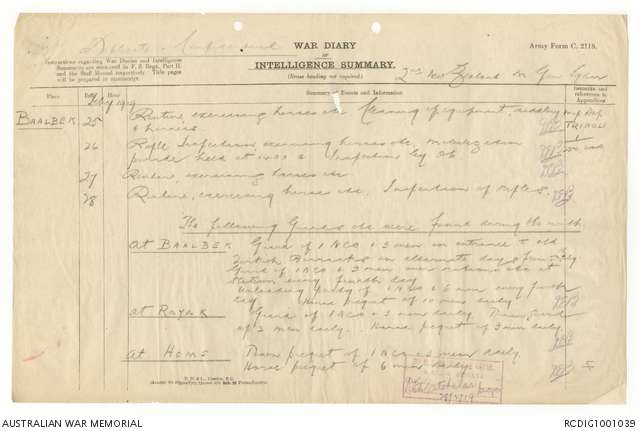 WAR DIARY
or
INTELLIGENCE SUMMARY.
(Erase heading not required.)
Army Form C. 2118.
Instructions regarding War Diaries and Intelligence
Summaries are contained in F. S. Regs., Part II.
and the Staff Manual respectively. Title pages
will be prepared in manuscript.
2nd New Zealand M Gun Sqdn
Place
Date
Hour
Summary of Events and Information
Remarks and
references to
Appendices
Feby 1919
BAALBEK 25 Routine, exercising horses etc. Cleaning of equipment, saddlery
& harness
TRIPOLI
26 Rifle Inspection, exercising horses etc.
parade held at 1400 & Inspection by
27 Routine, exercising horses etc
28 Routine, exercising horses etc. Inspection of rifles.
The following Guards etc were found during the month
at BAALBEK Guard of 1 NCO & 3 men on entrance to old
Turkish Barracks on alternate days &
Guard of 1 NCO & 3 men over rations etc at
Station every fourth day
Unloading party of 1 NCO & 6 men every fourth
day. Horse piquet of 10 men daily.
at RAYAK Guard of 1 NCO & 3 men daily.
of 3 men daily. Horse piquet of 3 men daily
at HOMS piquet of 1 NCO & 3 men daily
Horse piquet of 6 men daily
AUSTRALIAN WAR MEMORIAL
RCDIG1001039